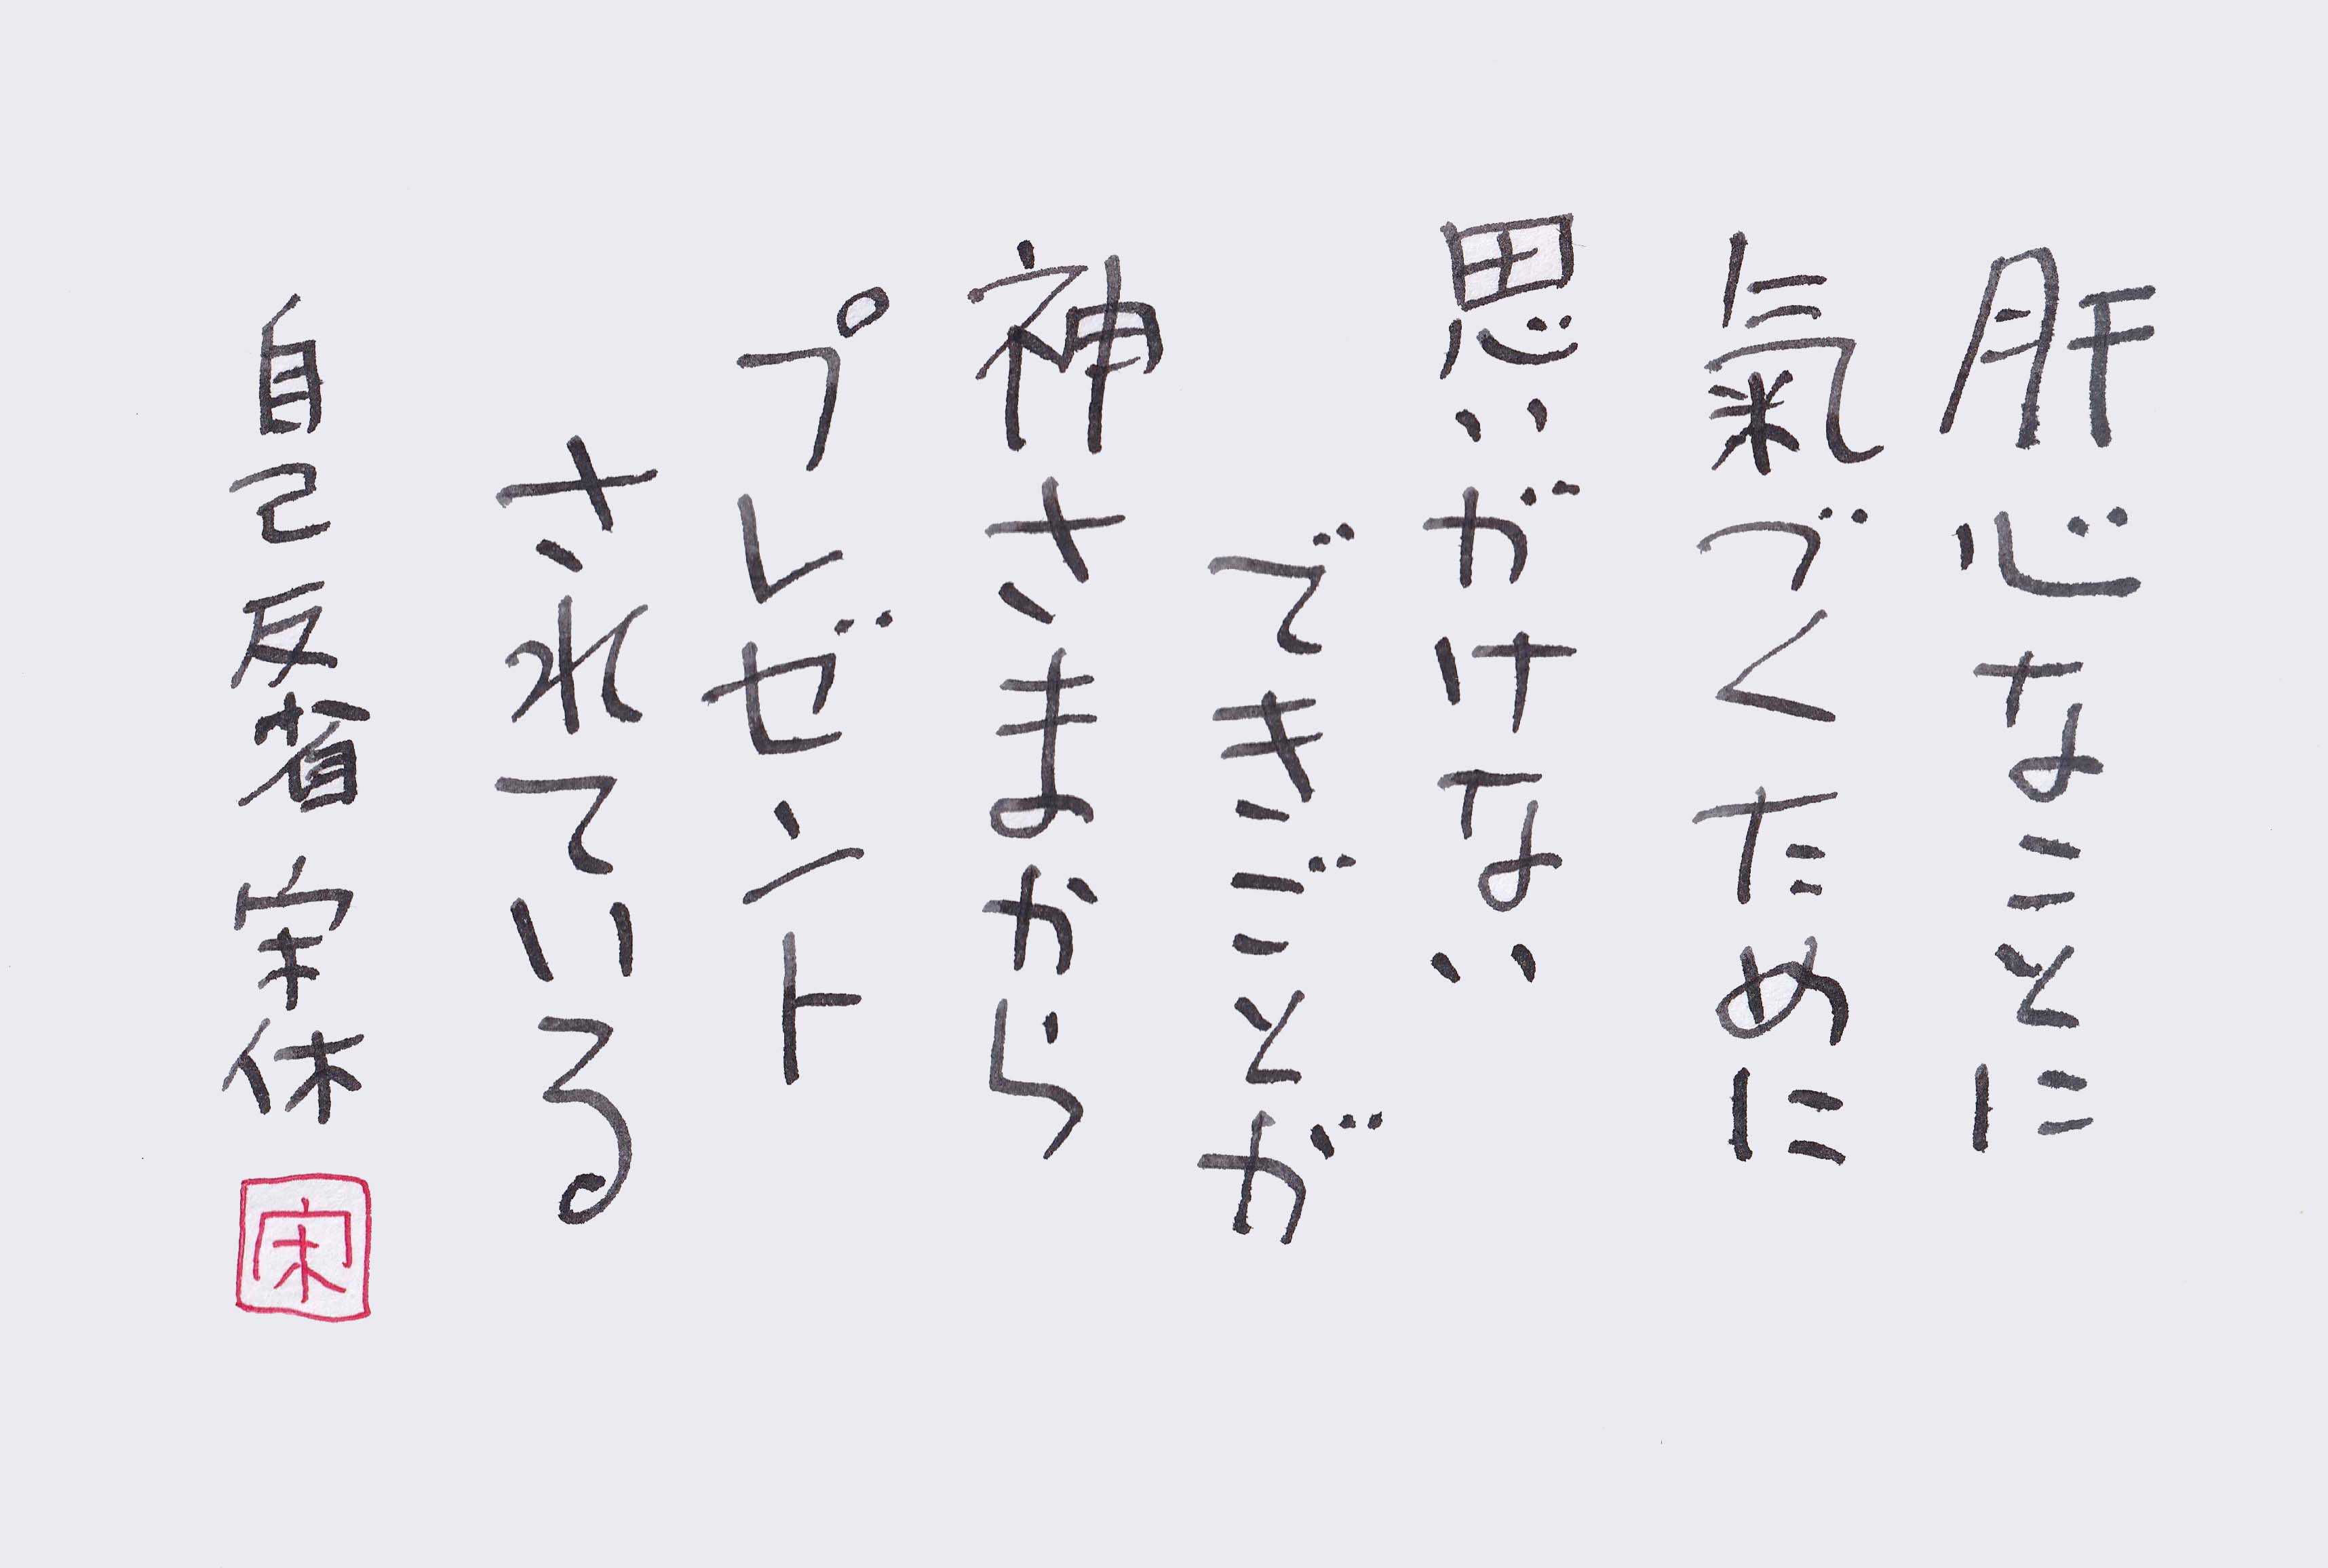 肝心なことに
氣づくために
思いがけない
できごとが
神さまから
プレゼント
されている
自己反省 宋休
宋